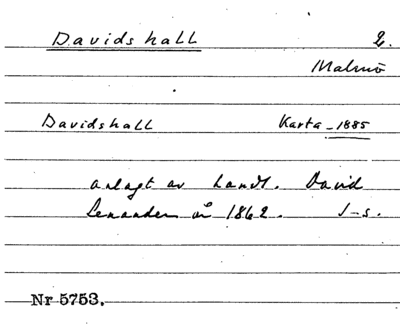 Davidshall L.
Malmö
Davidshall Karta 1885
anlagt av Landt. David
Lenander år 1862. J-s.
Nr 5753.